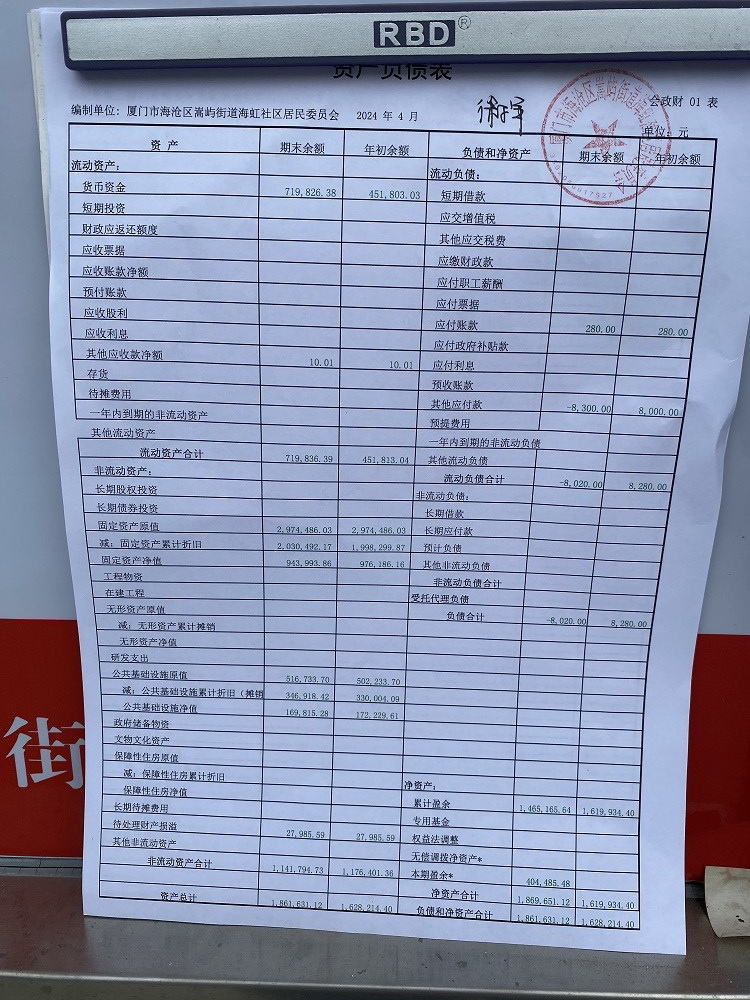 RBD®
资产负债表
会政财 01 表
编制单位: 厦门市海沧区嵩屿街道海虹社区居民委员会 2024 年 4 月
单位: 元
资 产 期末余额 年初余额 负债和净资产 期末余额 年初余额
流动资产: 流动负债:
货币资金 719,826.38 451,803.03 短期借款
短期投资 应交增值税
财政应返还额度 其他应交税费
应收票据 应缴财政款
应收账款净额 应付职工薪酬
预付账款 应付票据
应收股利 应付账款 280.00 280.00
应收利息 应付政府补贴款
其他应收款净额 10.01 10.01 应付利息
存货 预收账款
待摊费用 其他应付款 -8,300.00 8,000.00
一年内到期的非流动资产 预提费用
其他流动资产 一年内到期的非流动负债
流动资产合计 719,836.39 451,813.04 其他流动负债
非流动资产: 流动负债合计 -8,020.00 8,280.00
长期股权投资 非流动负债:
长期债券投资 长期借款
固定资产原值 2,974,486.03 2,974,486.03 长期应付款
减: 固定资产累计折旧 2,030,492.17 1,998,299.87 预计负债
固定资产净值 943,993.86 976,186.16 其他非流动负债
工程物资 非流动负债合计
在建工程 受托代理负债
无形资产原值 负债合计 -8,020.00 8,280.00
减: 无形资产累计摊销
无形资产净值
研发支出
公共基础设施原值 516,733.70 502,233.70
减: 公共基础设施累计折旧(摊销 346,918.42 330,004.09
公共基础设施净值 169,815.28 172,229.61
政府储备物资
文物文化资产
保障性住房原值
减: 保障性住房累计折旧 净资产:
保障性住房净值 累计盈余 1,465,165.64 1,619,934.40
长期待摊费用 专用基金
待处理财产损溢 27,985.59 27,985.59 权益法调整
其他非流动资产 无偿调拨净资产*
非流动资产合计 1,141,794.73 1,176,401.36 本期盈余* 404,485.48
净资产合计 1,869,651.12 1,619,934.40
资产总计 1,861,631.12 1,628,214.40 负债和净资产合计 1,861,631.12 1,628,214.40
街